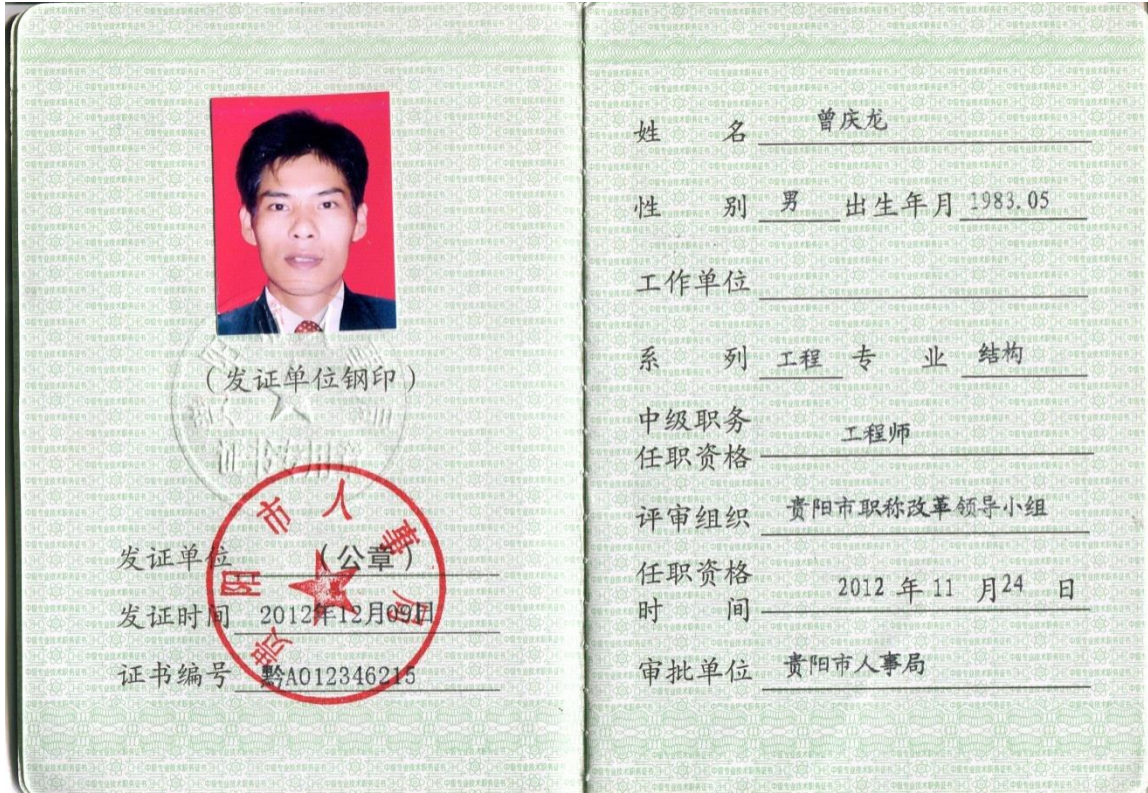 (发证单位钢印)
证书专用章
贵阳市人事局
发证单位 (公章)
发证时间 2012年12月09日
证书编号 黔A012346215
姓 名 曾庆龙
性 别 男 出生年月 1983.05
工作单位
系 列 工程 专 业 结构
中级职务
任职资格 工程师
评审组织 贵阳市职称改革领导小组
任职资格
时 间 2012 年 11 月 24 日
审批单位 贵阳市人事局